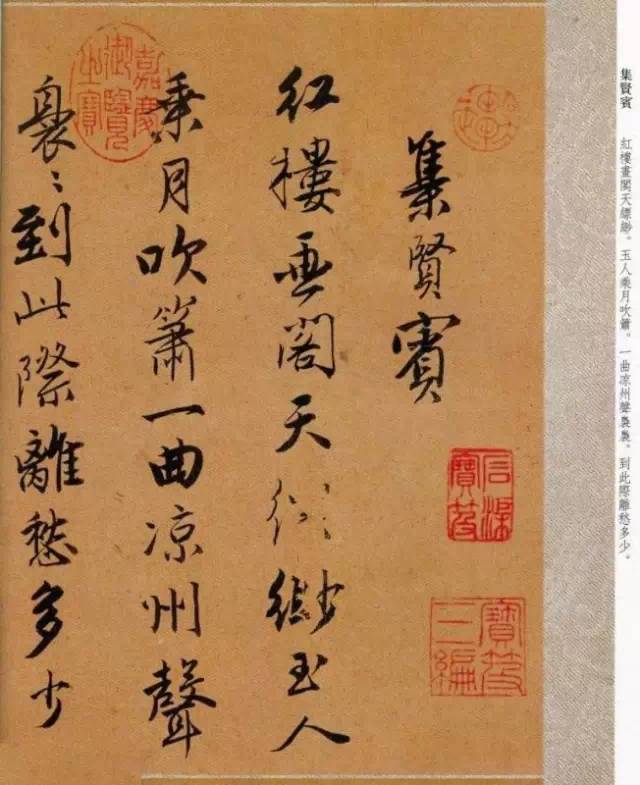 集賢賓　紅樓畫閣天縹緲。玉人乘月吹簫。一曲凉州聲裊裊。到此際離愁多少。
集賢賓
石渠寶笈
寶笈三編
红樓畫閣天縹緲玉人
乘月吹簫一曲凉州聲
嘉慶御覽之寶
裊〻到此際離愁多少